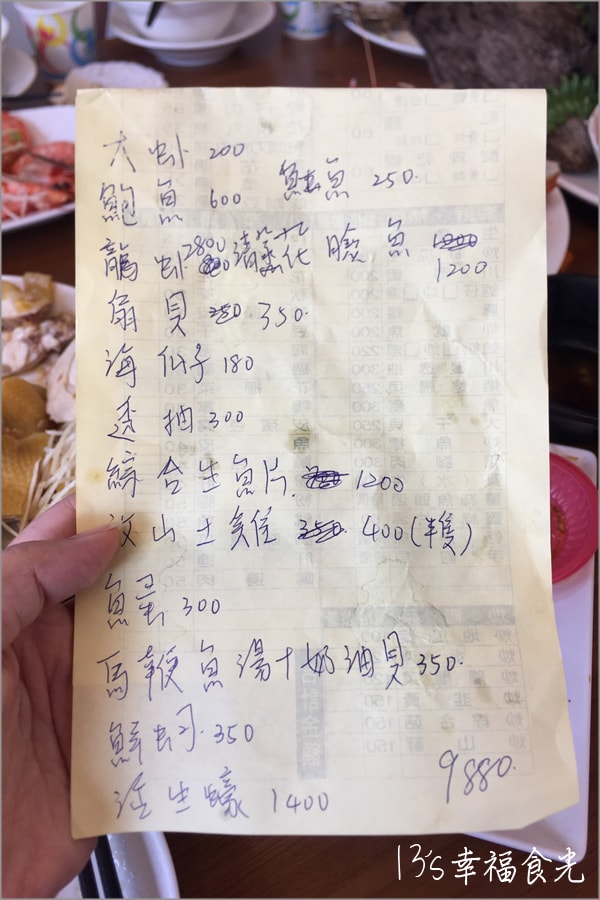 大虾 200
鮑魚 600 鮭魚 250.
龍虾 2800 清蒸花臉魚 1200
扇貝 350.
海瓜子 180
透抽 300
綜合生魚片. 1200
放山土雞 400(半隻)
魚蛋 300
馬鞭魚湯+奶油貝 350.
鮮蚵. 350
活生蠔 1400
9880.
13's幸福食光